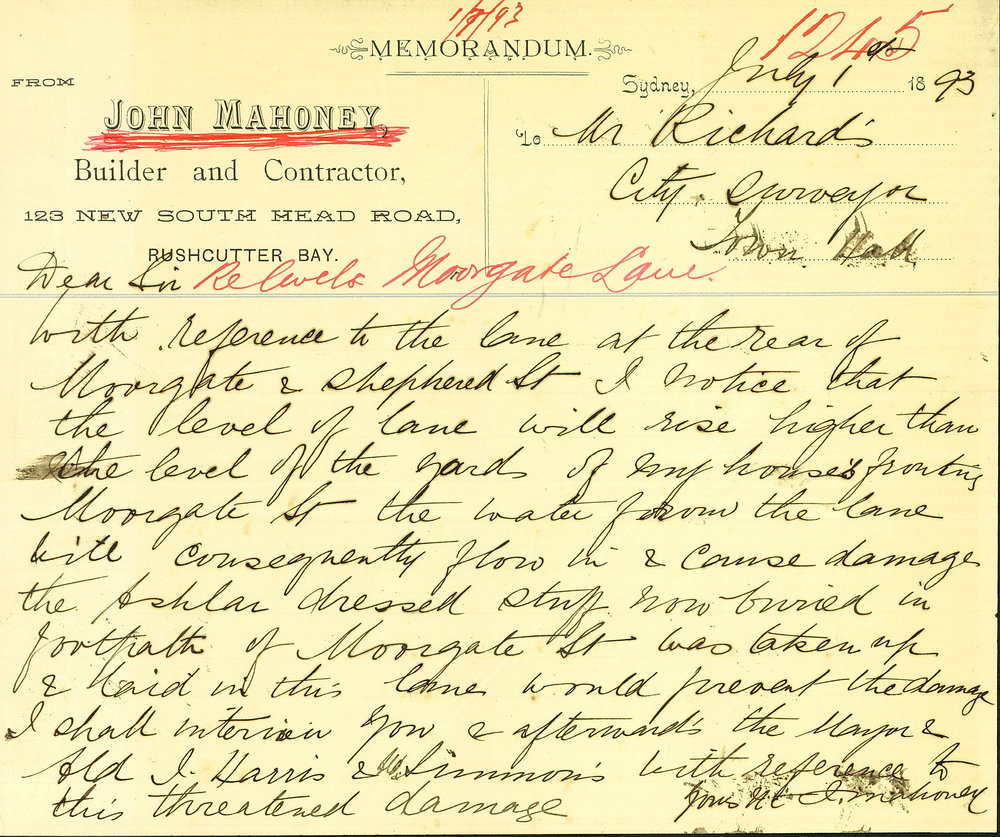 1/7/93
MEMORANDUM.
1245
FROM
Sydney, July 1st 1893
JOHN MAHONEY,
To Mr Richards
Builder and Contractor,
City Surveyor
123 NEW SOUTH HEAD ROAD,
Town Hall
RUSHCUTTER BAY.
Dear Sir Re levels Moorgate Lane.
with reference to the lane at the rear of
Moorgate & Shepherd St I notice that
the level of lane will rise higher than
the level of the yards of my houses fronting
Moorgate St the water from the lane
will consequently flow in & cause damage
the Ashlar dressed stuff now buried in
footpath of Moorgate St was taken up
& laid in this lane would prevent the damage
I shall interview you & afterwards the Mayor &
Ald J. Harris & Simmons with reference to
this threatened damage yours &c J. Mahoney